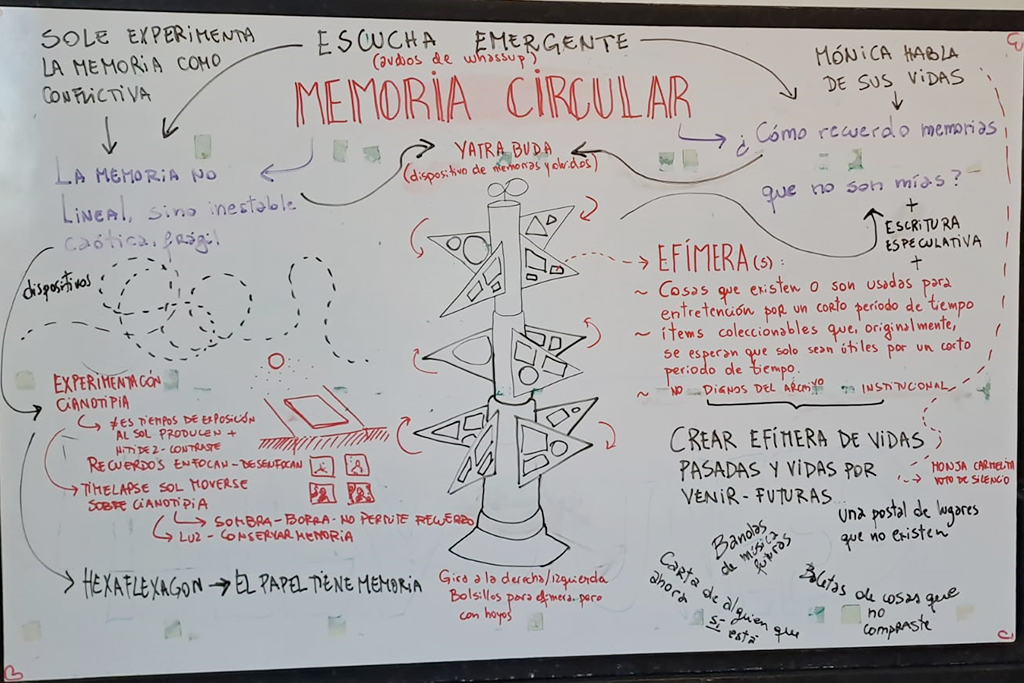 SOLE EXPERIMENTA
LA MEMORIA COMO
CONFLICTIVA
ESCUCHA EMERGENTE
(audios de whassup)
MEMORIA CIRCULAR
MÓNICA HABLA
DE SUS VIDAS
¿Cómo recuerdo memorias
que no son mías?
+
ESCRITURA
ESPECULATIVA
+
YATRA BUDA
(dispositivo de memorias y olvidos)
LA MEMORIA NO
LINEAL, sino inestable
caótica, frágil
dispositivos
EXPERIMENTACIÓN
CIANOTIPIA
≠ES TIEMPOS DE EXPOSICIÓN
AL SOL PRODUCEN +
NITIDEZ - CONTRASTE
RECUERDOS ENFOCAN - DESENFOCAN
TIMELAPSE SOL MOVERSE
SOBRE CIANOTIPIA
SOMBRA - BORRA - NO PERMITE RECUERDO
LUZ - CONSERVAR MEMORIA
HEXAFLEXAGON → EL PAPEL TIENE MEMORIA
Gira a la derecha/izquierda
Bolsillos para efímera pero
con hoyos
EFÍMERA(S):
~ Cosas que existen o son usadas para
entretención por un corto período de tiempo
~ ítems coleccionables que, originalmente,
se esperan que solo sean útiles por un corto
periodo de tiempo.
~ NO DIGNOS DEL ARCHIVO INSTITUCIONAL
CREAR EFÍMERA DE VIDAS
PASADAS Y VIDAS POR
VENIR - FUTURAS...
MONJA CARMELITA
VOTO DE SILENCIO
Bandas
de música
futuras
una postal de lugares
que no existen
Carta de alguien que
ahora sí está
Boletas de cosas que
no
compraste